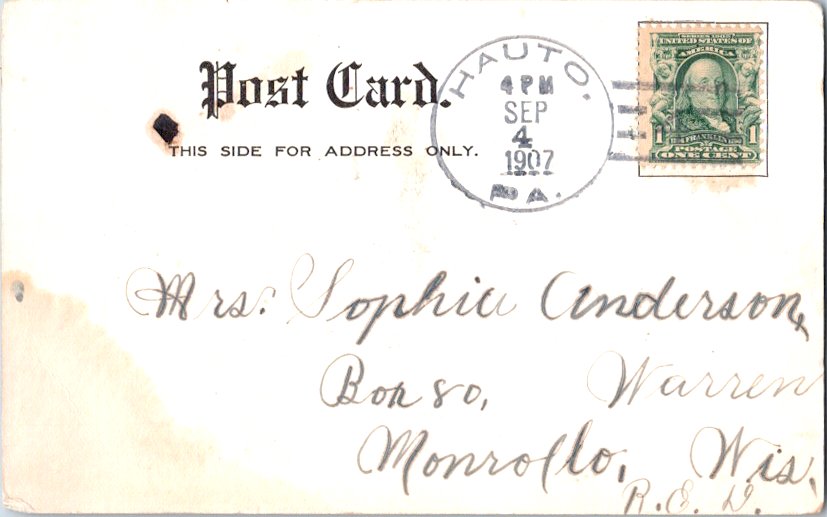 Post Card.
THIS SIDE FOR ADDRESS ONLY.
HAUTO,
4 PM
SEP
4
1907
PA.
SERIES 1902
UNITED STATES OF
AMERICA
1 FRANKLIN 1
POSTAGE
ONE CENT
Mrs. Sophia Anderson,
Box 80, Warren
Monrollo, Wis.
R.E.D.